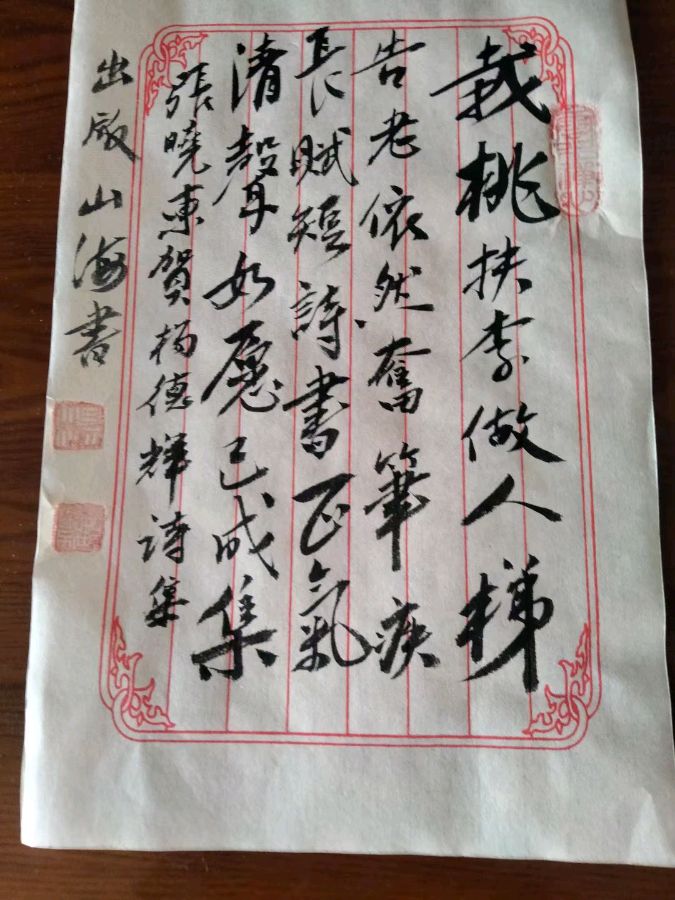 栽桃扶李做人梯
告老依然奮筆疾
長賦短詩書正氣
清聲如願已成集
張曉東賀楊德輝詩集
出版山海書